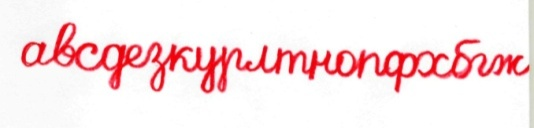 авсдезкурлтнопфхбгж